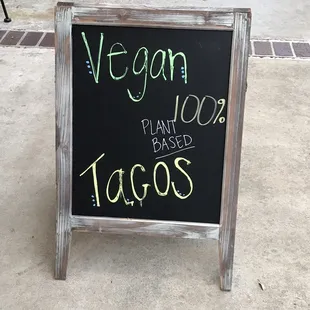 Vegan
100%
PLANT
BASED
TACOS